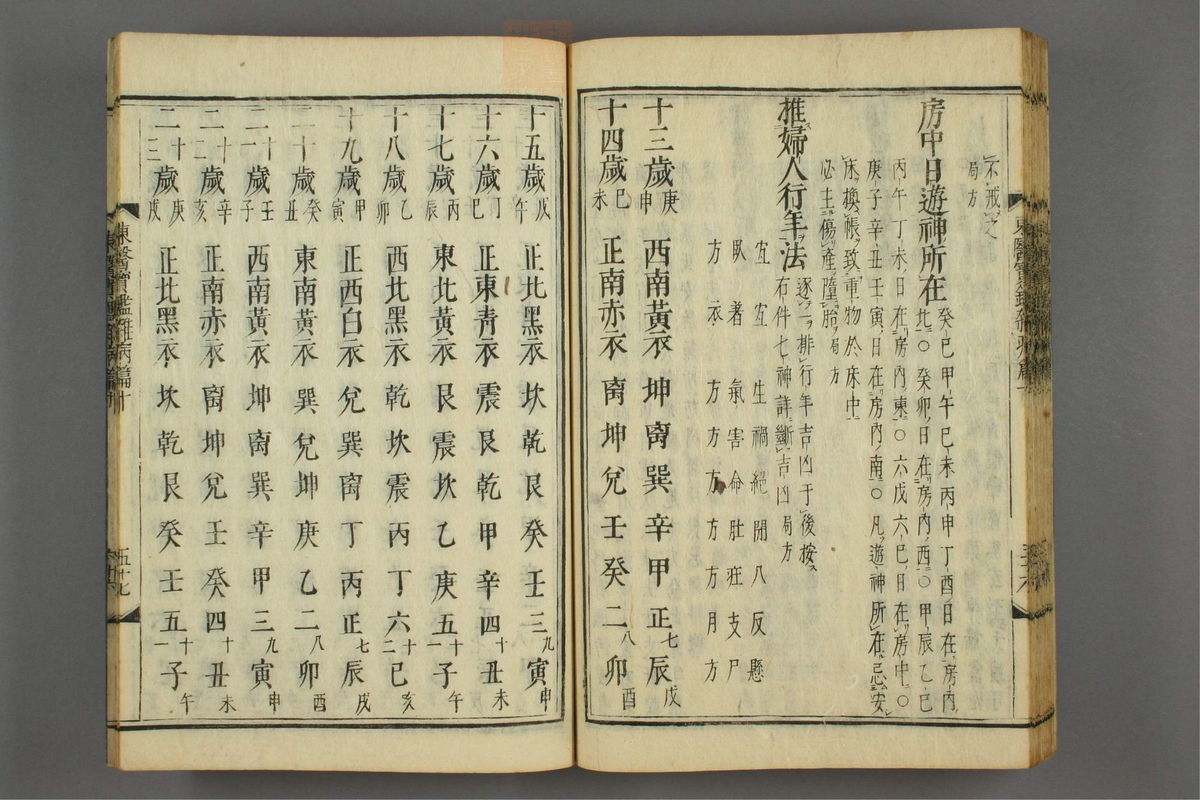 不戒之
局方
房中日遊神所在
癸巳甲午巳未丙申丁酉日在房內
北○癸卯日在房內西○甲辰乙巳
丙午丁未日在房內東○六戊六巳日在房中○
庚子辛丑壬寅日在房內南○凡遊神所在忌安
床換帳致重物於床中
必主傷產墮胎局方
推婦人行年法
逐一排行年吉凶于後按
右件七神詳斷吉凶局方
宜宜生禍絕閉八反懸
臥著氣害命肚壯支尸
方衣方方方方方月方
十三歲庚申 西南黃衣 坤离巽辛甲正七辰戌
十四歲巳未 正南赤衣 离坤兌壬癸二八卯酉
東醫寶鑑雜病篇十
十五歲戊午 正北黑衣 坎乾艮癸壬三九寅申
十六歲丁巳 正東青衣 震艮乾甲辛四十丑未
十七歲丙辰 東北黃衣 艮震坎乙庚五十一子午
十八歲乙卯 西北黑衣 乾坎震丙丁六十二巳亥
十九歲甲寅 正西白衣 兌巽离丁丙正七辰戌
二十歲癸丑 東南黃衣 巽兌坤庚乙二八卯酉
二十一歲壬子 西南黃衣 坤离巽辛甲三九寅申
二十二歲辛亥 正南赤衣 离坤兌壬癸四十丑未
二十三歲庚戌 正北黑衣 坎乾艮癸壬五十一子午
東醫寶鑑雜病篇十
五十七